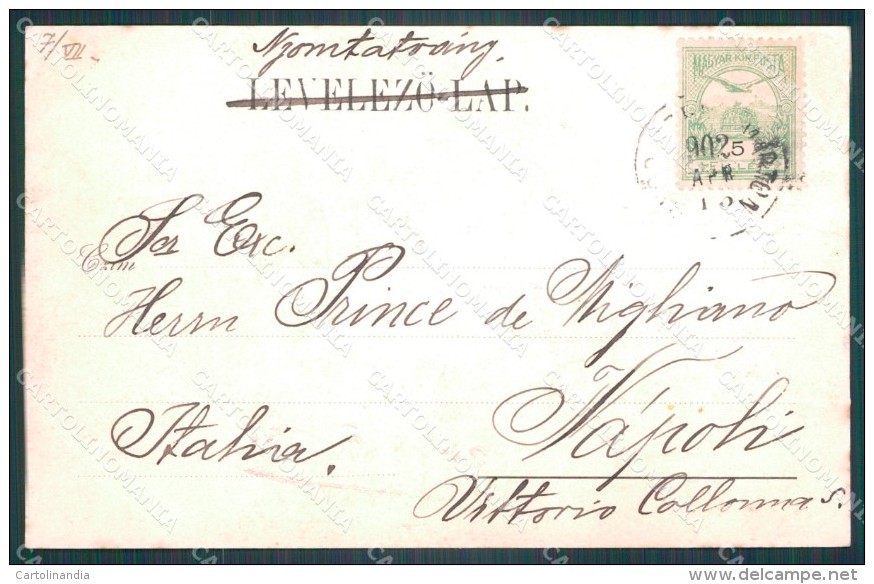 7/VII.
Nyomtatvány.
LEVELEZŐ-LAP.
MAGYAR KIR. POSTA
902 5
APR
Czim
Sa Exc.
Herrn Prince de Migliano
Italia.
Nápoli
Vittorio Collonna s.
CARTOLINOMANIA
Cartolinandia
www.delcampe.net